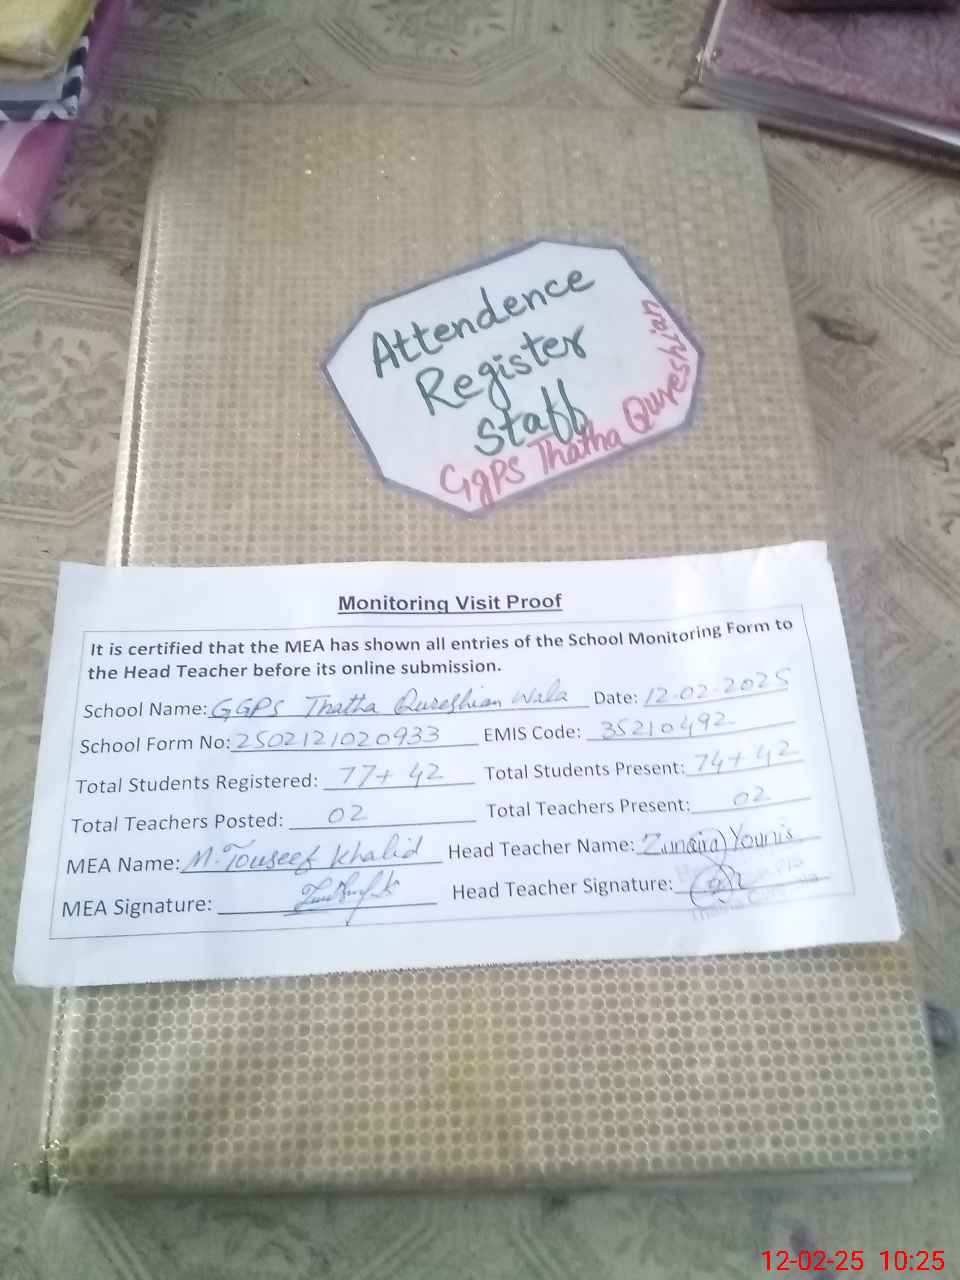 Attendence
Register
Staff
GgPS Thatha Qureshian
Monitoring Visit Proof
It is certified that the MEA has shown all entries of the School Monitoring Form to
the Head Teacher before its online submission.
School Name: GGPS Thatha Qureshian Wala Date: 12-02-2025
School Form No: 2502121020933 EMIS Code: 35210492
Total Students Registered: 77+ 42 Total Students Present: 74+42
Total Teachers Posted: 02 Total Teachers Present: 02
MEA Name: M. Touseef Khalid Head Teacher Name: Zunaira Younis
MEA Signature: Head Teacher Signature:
12-02-25 10:25